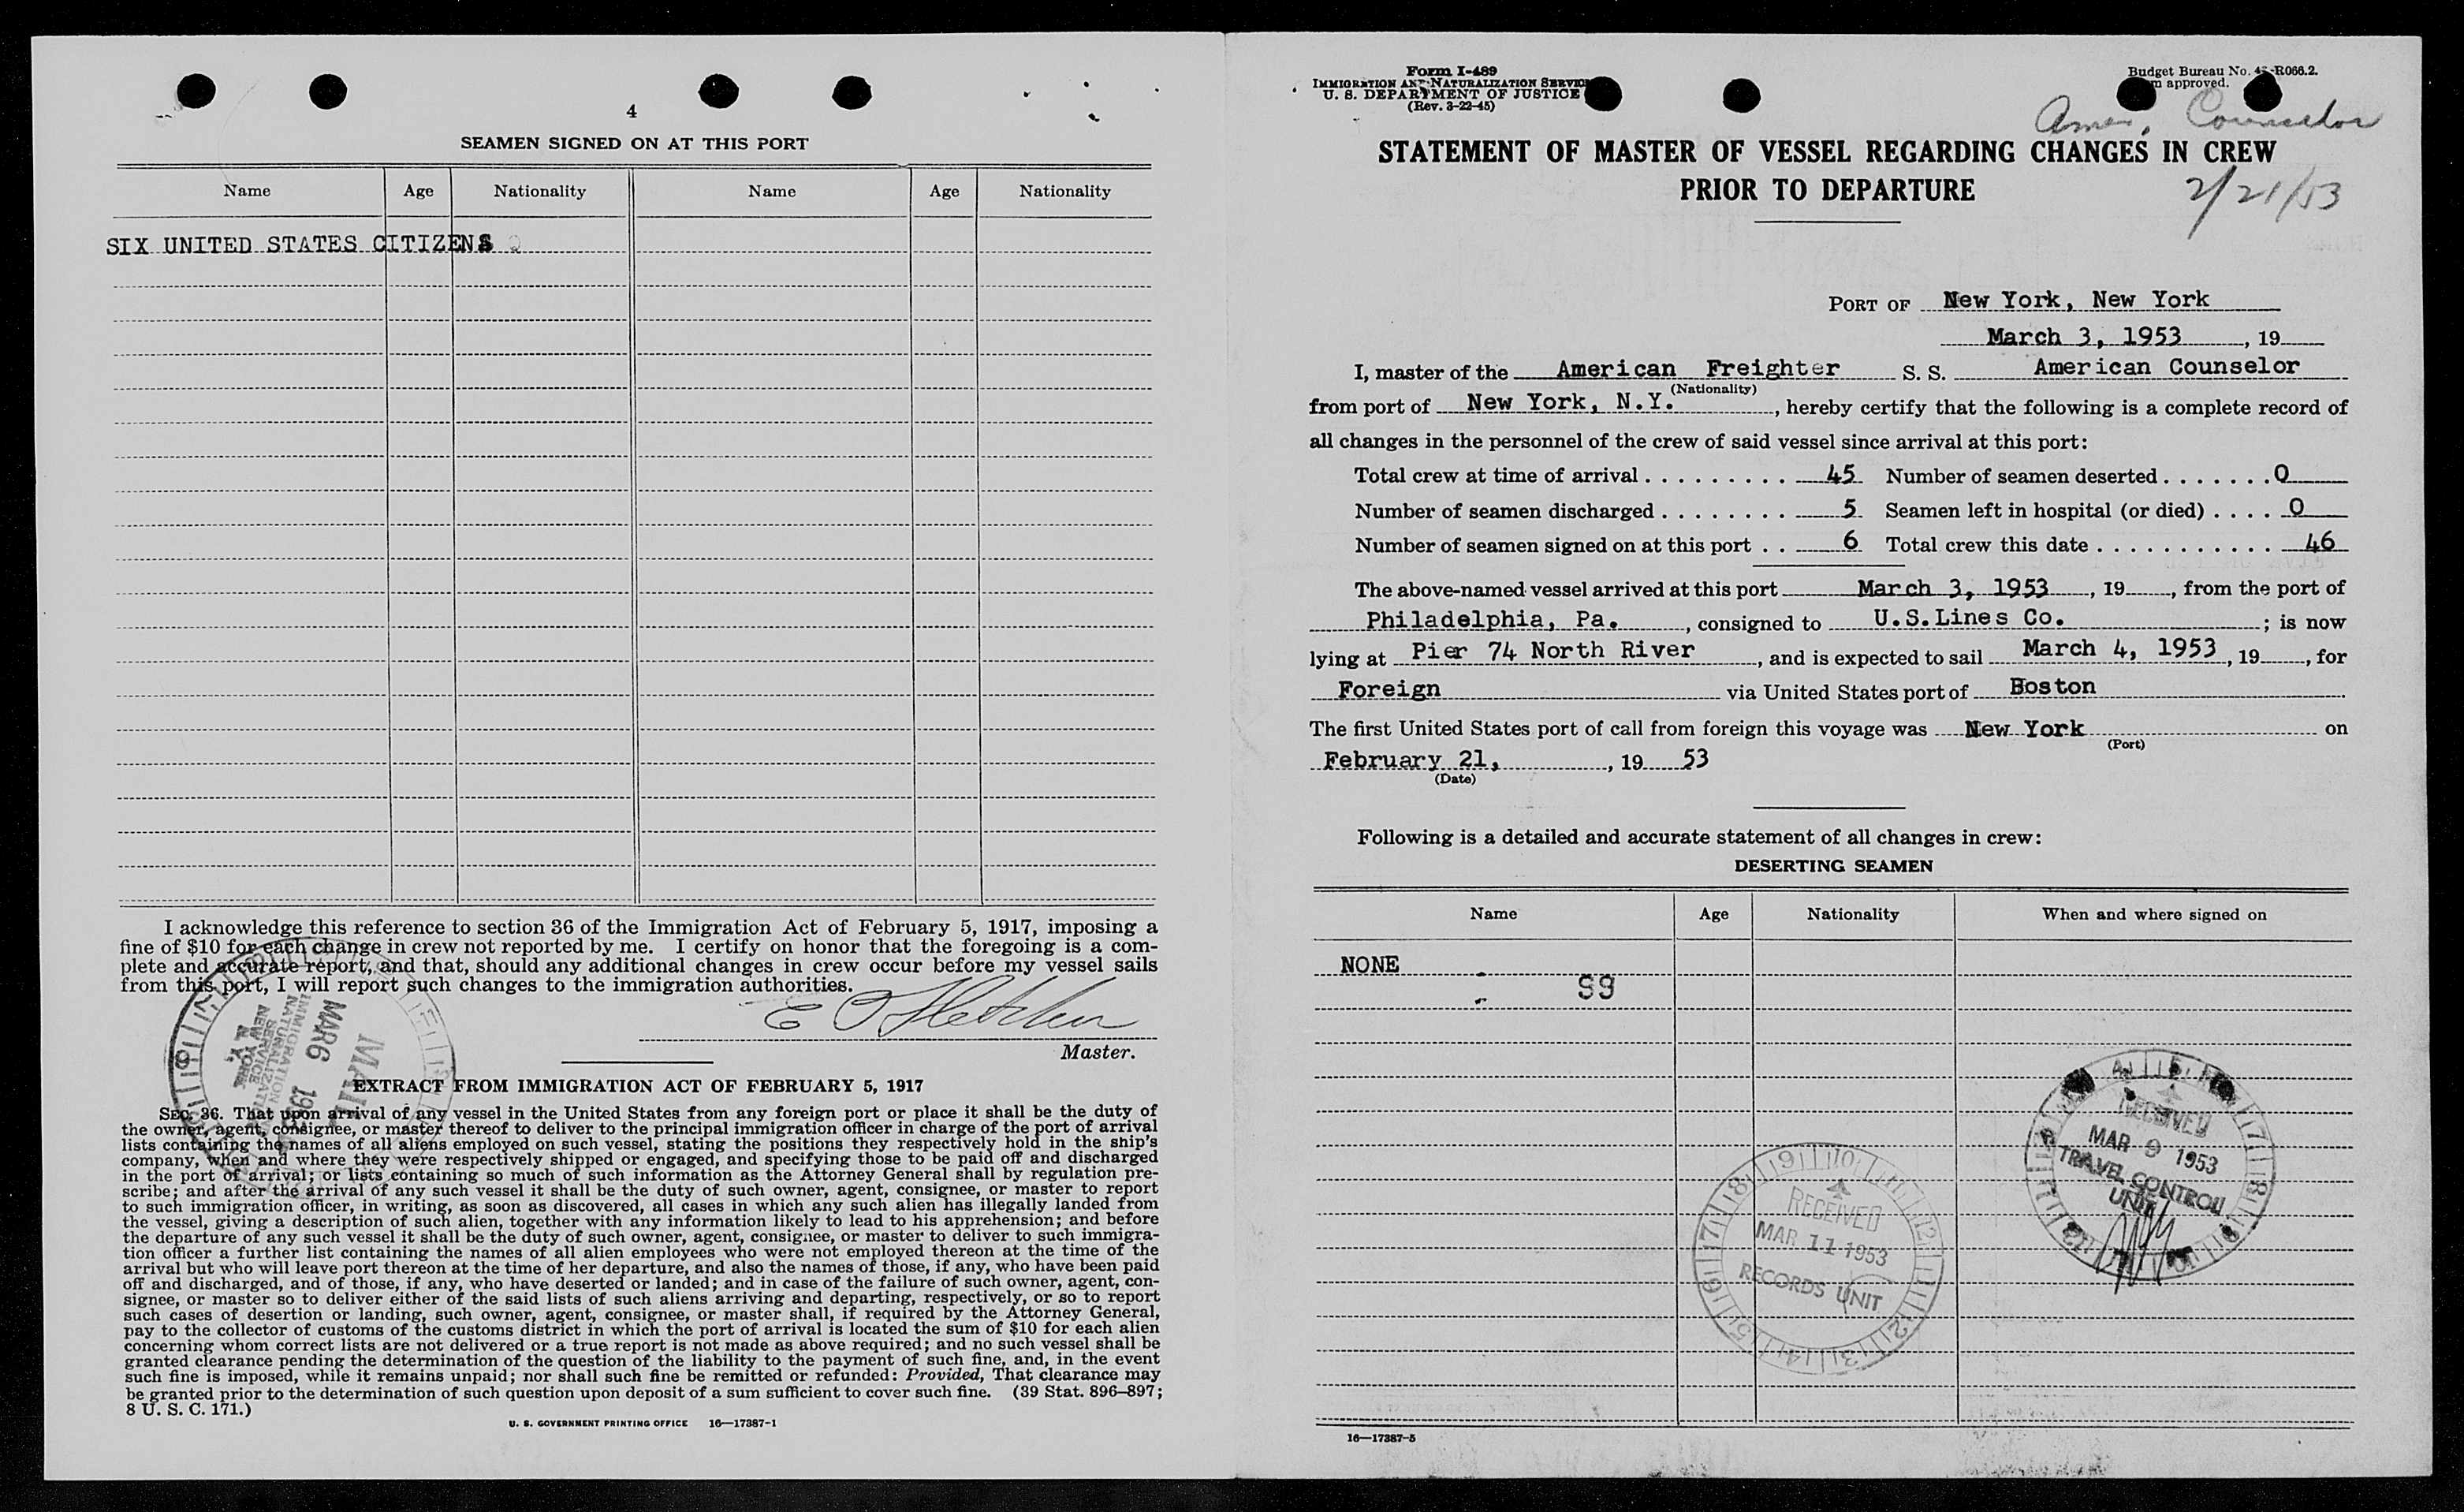 4
SEAMEN SIGNED ON AT THIS PORT
Name Age Nationality Name Age Nationality
SIX UNITED STATES CITIZENS
I acknowledge this reference to section 36 of the Immigration Act of February 5, 1917, imposing a
fine of $10 for each change in crew not reported by me. I certify on honor that the foregoing is a com-
plete and accurate report, and that, should any additional changes in crew occur before my vessel sails
from this port, I will report such changes to the immigration authorities.
E O Fletcher
Master.
MAIL
MAR 6
IMMIGRATION
NATURALIZATION
SERVICE
NEW YORK
N. Y.
EXTRACT FROM IMMIGRATION ACT OF FEBRUARY 5, 1917
SEC. 36. That upon arrival of any vessel in the United States from any foreign port or place it shall be the duty of
the owner, agent, consignee, or master thereof to deliver to the principal immigration officer in charge of the port of arrival
lists containing the names of all aliens employed on such vessel, stating the positions they respectively hold in the ship's
company, when and where they were respectively shipped or engaged, and specifying those to be paid off and discharged
in the port of arrival; or lists containing so much of such information as the Attorney General shall by regulation pre-
scribe; and after the arrival of any such vessel it shall be the duty of such owner, agent, consignee, or master to report
to such immigration officer, in writing, as soon as discovered, all cases in which any such alien has illegally landed from
the vessel, giving a description of such alien, together with any information likely to lead to his apprehension; and before
the departure of any such vessel it shall be the duty of such owner, agent, consignee, or master to deliver to such immigra-
tion officer a further list containing the names of all alien employees who were not employed thereon at the time of the
arrival but who will leave port thereon at the time of her departure, and also the names of those, if any, who have been paid
off and discharged, and of those, if any, who have deserted or landed; and in case of the failure of such owner, agent, con-
signee, or master so to deliver either of the said lists of such aliens arriving and departing, respectively, or so to report
such cases of desertion or landing, such owner, agent, consignee, or master shall, if required by the Attorney General,
pay to the collector of customs of the customs district in which the port of arrival is located the sum of $10 for each alien
concerning whom correct lists are not delivered or a true report is not made as above required; and no such vessel shall be
granted clearance pending the determination of the question of the liability to the payment of such fine, and, in the event
such fine is imposed, while it remains unpaid; nor shall such fine be remitted or refunded: Provided, That clearance may
be granted prior to the determination of such question upon deposit of a sum sufficient to cover such fine. (39 Stat. 896–897;
8 U. S. C. 171.)
U. S. GOVERNMENT PRINTING OFFICE 16—17387-1
Form I-489
IMMIGRATION AND NATURALIZATION SERVICE
U. S. DEPARTMENT OF JUSTICE
(Rev. 3-22-45)
Budget Bureau No. 4 -R066.2.
approved.
Amer. Counselor
2/21/53
STATEMENT OF MASTER OF VESSEL REGARDING CHANGES IN CREW
PRIOR TO DEPARTURE
PORT OF New York, New York
March 3, 1953, 19
I, master of the American Freighter S. S. American Counselor
(Nationality)
from port of New York, N.Y., hereby certify that the following is a complete record of
all changes in the personnel of the crew of said vessel since arrival at this port:
Total crew at time of arrival . . . . . . . . . 45 Number of seamen deserted . . . . . . . 0
Number of seamen discharged . . . . . . . . 5 Seamen left in hospital (or died) . . . . 0
Number of seamen signed on at this port . . 6 Total crew this date . . . . . . . . . . . 46
The above-named vessel arrived at this port March 3, 1953, 19, from the port of
Philadelphia, Pa., consigned to U.S.Lines Co.; is now
lying at Pier 74 North River, and is expected to sail March 4, 1953, 19, for
Foreign via United States port of Boston
The first United States port of call from foreign this voyage was New York on
(Port)
February 21, 19 53
(Date)
Following is a detailed and accurate statement of all changes in crew:
DESERTING SEAMEN
Name Age Nationality When and where signed on
NONE
S9
RECEIVED
MAR 9 1953
TRAVEL CONTROL
UNIT
RECEIVED
MAR 11 1953
RECORDS UNIT
16—17387-5